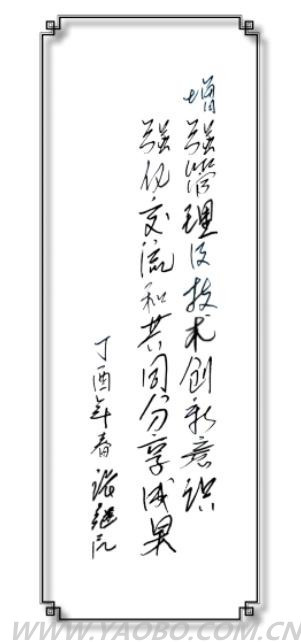 增强管理及技术创新意识
强化交流和共同分享成果
丁酉年春
WWW.YAOBO.COM.CN